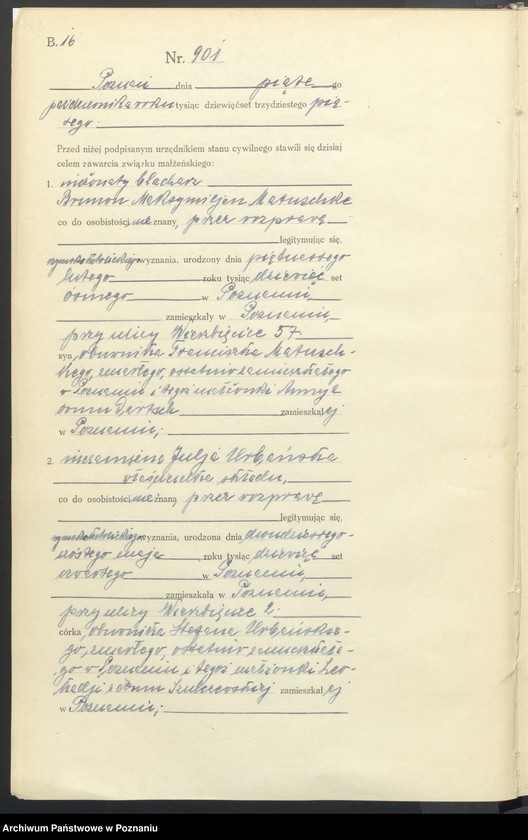 B. 16
Nr. 901
Poznań dnia piąte go
października roku tysiąc dziewięćset trzydziestego pią-
tego.
Przed niżej podpisanym urzędnikiem stanu cywilnego stawili się dzisiaj
celem zawarcia związku małżeńskiego:
1. nieżonaty blacharz
Bronon Maksymiljan Matuschke
co do osobistości nie znany, przez rozprawę
legitymując się.
rzymsko katolickiego wyznania, urodzony dnia piętnastego
lutego roku tysiąc dziewięć set
ósmego w Poznaniu,
zamieszkały w Poznaniu,
przy ulicy Wierzbięcice 57
syn obuwnika Franciszka Matusch-
kego, zmarłego, ostatnio zamieszkałego
w Poznaniu i tegoż małżonki
domu zamieszkałej
w Poznaniu;
2. niezamężna Julja Urbańska
właścicielka składu,
co do osobistości nie znana, przez rozprawę
legitymując się,
rzymsko katolickiego wyznania, urodzona dnia dwudziestego-
szóstego maja roku tysiąc dziewięć set
czwartego w Poznaniu,
zamieszkała w Poznaniu,
przy ulicy Wierzbięcice 2.
córka obuwnika Urbańskie-
go, zmarłego, ostatnio zamieszkałe-
go w Poznaniu i tegoż małżonki Leo-
kadji z domu zamieszkałej
w Poznaniu;
Archiwum Państwowe w Poznaniu